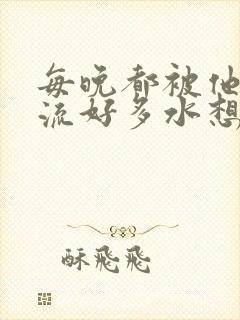 每晚都被他
流好多水想
酥飛飛